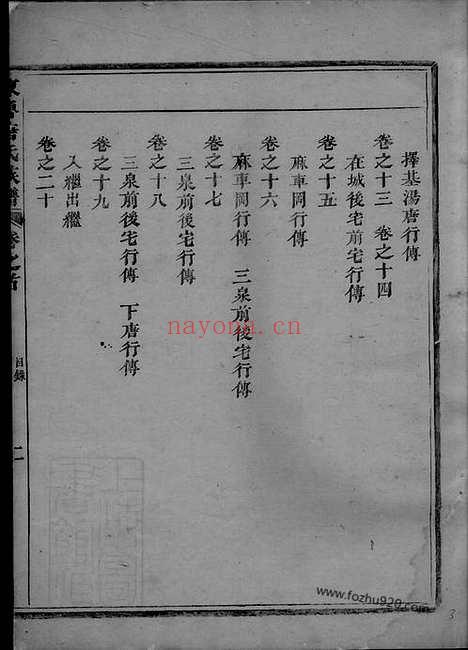 擇基湯唐行傳
卷之十三　卷之十四
在城後宅前宅行傳
卷之十五
麻車岡行傳
卷之十六
麻車岡行傳　三泉前後宅行傳
卷之十七
三泉前後宅行傳
卷之十八
三泉前後宅行傳　下唐行傳
卷之十九
入繼出繼
卷之二十
目錄
二
nayona.cn
www.fozhu920.com
3